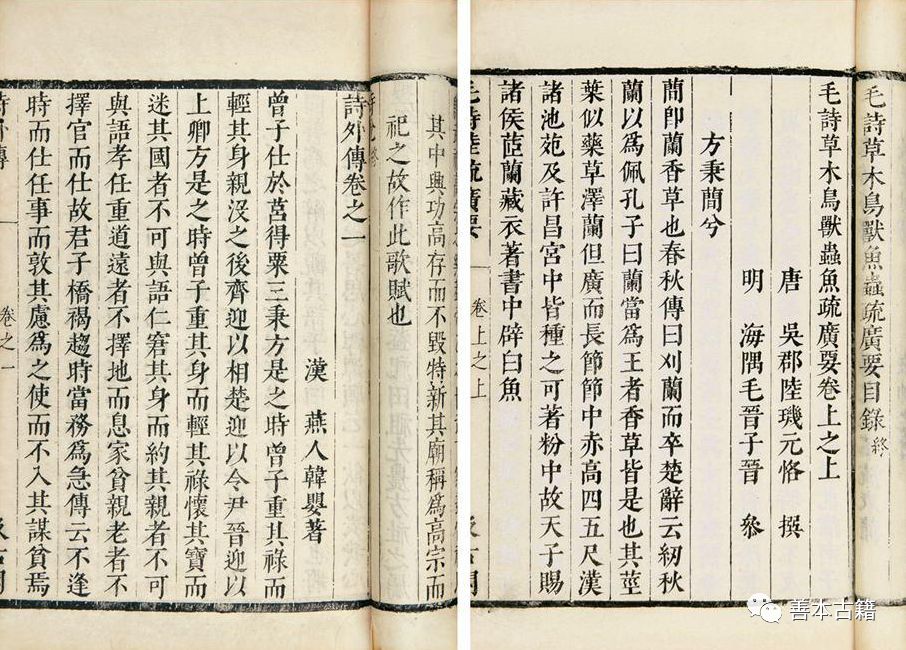 毛詩草木鳥獸魚蟲疏廣要目錄終
毛詩草木鳥獸蟲魚疏廣要卷上之上
唐 吳郡陸璣元恪 撰
明 海隅毛晉子晉 參
方秉蕳兮
蕳卽蘭香草也春秋傳曰刈蘭而卒楚辭云紉秋
蘭以爲佩孔子曰蘭當爲王者香草皆是也其莖
葉似藥草澤蘭但廣而長節節中赤高四五尺漢
諸池苑及許昌宮中皆種之可著粉中故天子賜
諸侯茝蘭藏衣著書中辟白魚
毛詩陸疏廣要 卷上之上
其中興功高存而不毀特新其廟稱爲高宗而
祀之故作此歌賦也
詩外傳卷之一
漢 燕人韓嬰著
曾子仕於莒得粟三秉方是之時曾子重其祿而
輕其身親沒之後齊迎以相楚迎以令尹晉迎以
上卿方是之時曾子重其身而輕其祿懷其寶而
迷其國者不可與語仁窘其身而約其親者不可
與語孝任重道遠者不擇地而息家貧親老者不
擇官而仕故君子橋褐趨時當務爲急傳云不逢
時而仕任事而敦其慮爲之使而不入其謀貧焉
詩外傳 卷之一
善本古籍